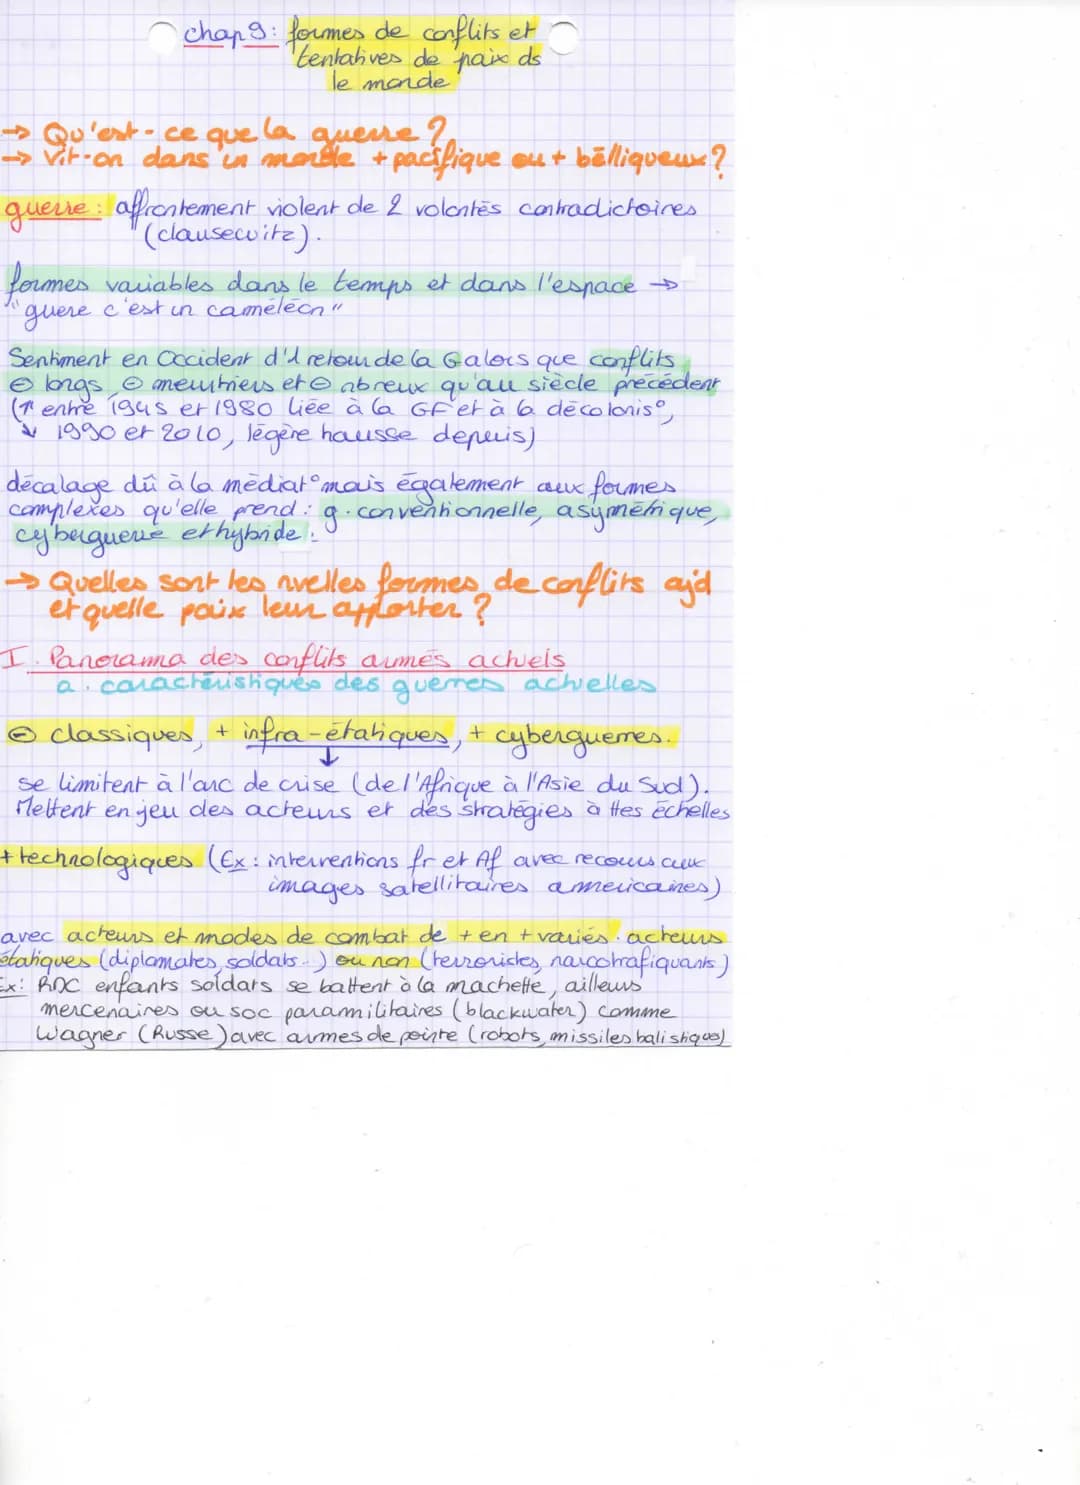 chap 9: formes de conflits et
tentatives de paix ds
le monde
→ Qu'est-ce que la guerre ?
→ Vit-on dans un monde + pacifique ou + bélliqueux ?
guerre : affrontement violent de 2 volontés contradictoires
(clausewitz).
formes variables dans le temps et dans l'espace →
"guere c'est un caméléon"
Sentiment en Occident d'1 retour de la G alors que conflits
⊖ longs, ⊖ meurtriers et ⊖ nbreux qu'au siècle précédent
(↑ entre 1945 et 1980 liée à la GF et à la décolonis°,
↓ 1990 et 2010, légère hausse depuis)
décalage dû à la médiat° mais également aux formes
complexes qu'elle prend : g. conventionnelle, asymétrique,
cyberguerre et hybride.
→ Quelles sont les nvelles formes de conflits ajd
et quelle paix leur apporter ?
I. Panorama des conflits armés actuels
a. caractéristiques des guerres actuelles
⊖ classiques, + infra-étatiques, + cyberguerres.
↓
se limitent à l'arc de crise (de l'Afrique à l'Asie du Sud).
Mettent en jeu des acteurs et des stratégies à ttes échelles
+ technologiques (Ex : interventions fr et Af avec recours aux
images satellitaires américaines)
avec acteurs et modes de combat de + en + variés. acteurs
étatiques (diplomates, soldats...) ou non (terroristes, narcotrafiquants)
Ex: RDC enfants soldats se battent à la machette, ailleurs
mercenaires ou soc paramilitaires (blackwater) comme
Wagner (Russe) avec armes de pointe (robots, missiles balistiques)